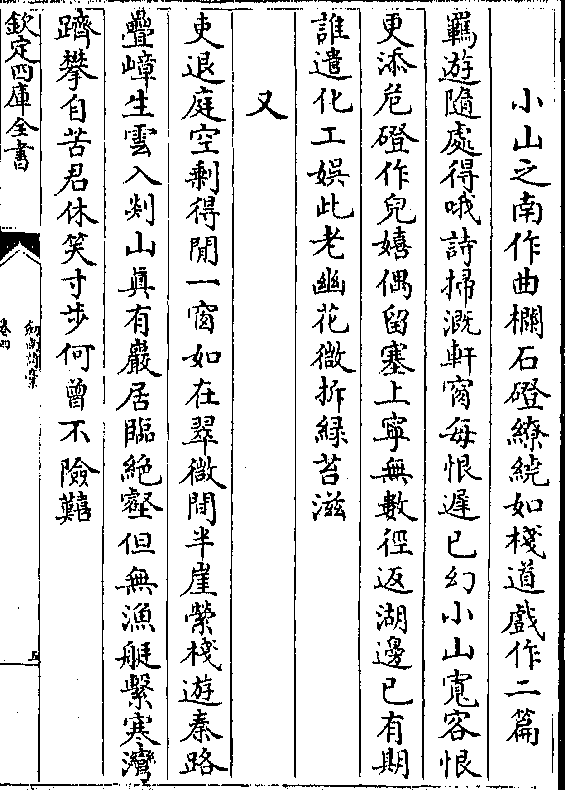 小山之南作曲欄石磴繚繞如棧道戲作二篇
羈遊隨處得哦詩掃溉軒窗每恨遲已幻小山寬客恨
更添危磴作兒嬉偶留塞上寧無數徑返湖邊已有期
誰遣化工娯此老幽花微拆緑苔滋
又
吏退庭空剰得閒一窗如在翠微間半崖縈棧遊秦路
疊嶂生雲入剡山真有巖居臨絶壑但無漁艇繫寒灣
躋攀自苦君休笑寸步何曾不險艱
欽定四庫全書
劍南詩稾
卷四
五